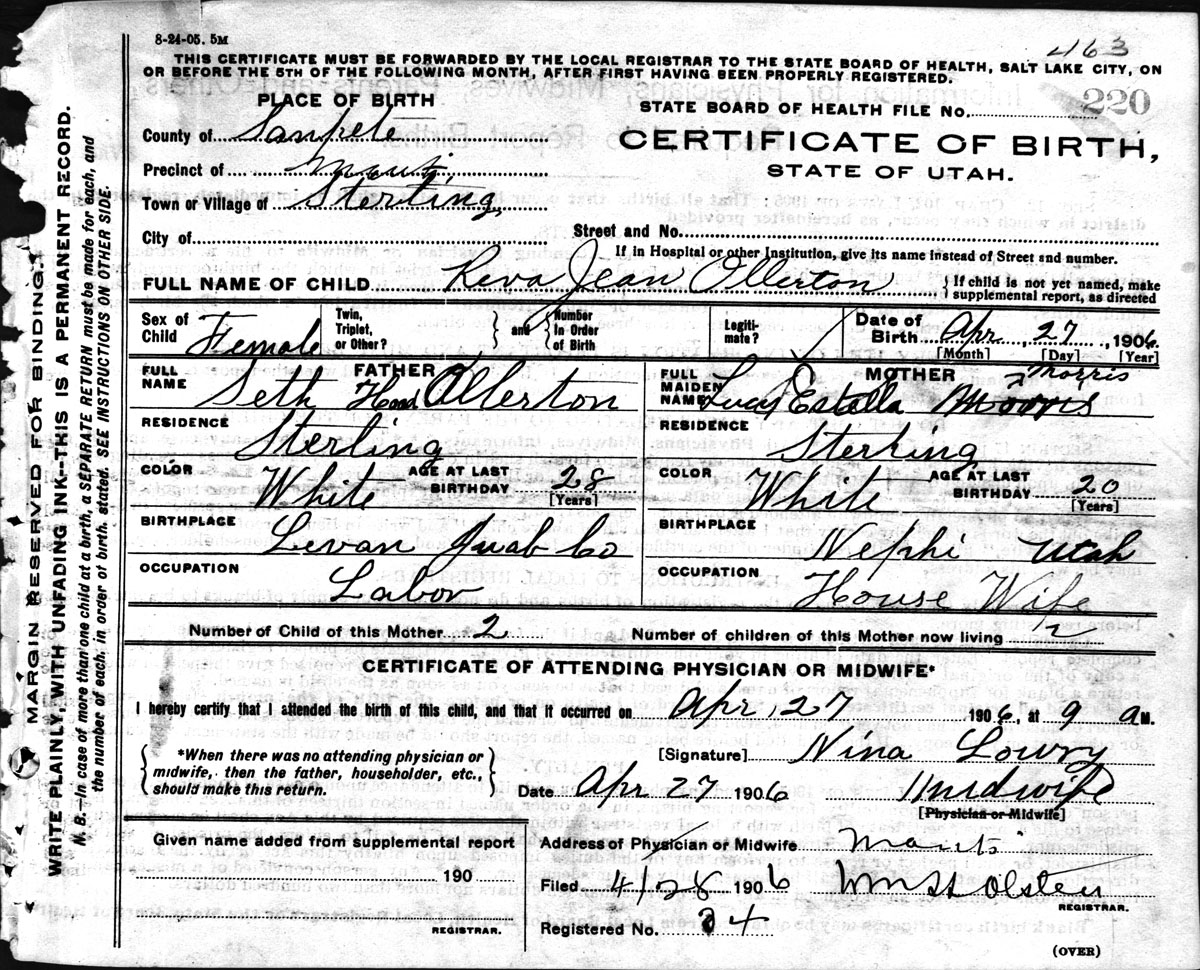 8-24-05. 5M
463
THIS CERTIFICATE MUST BE FORWARDED BY THE LOCAL REGISTRAR TO THE STATE BOARD OF HEALTH, SALT LAKE CITY, ON
OR BEFORE THE 5TH OF THE FOLLOWING MONTH, AFTER FIRST HAVING BEEN PROPERLY REGISTERED.
PLACE OF BIRTH
STATE BOARD OF HEALTH FILE No. 220
County of Sanpete
CERTIFICATE OF BIRTH,
Precinct of Manti,
STATE OF UTAH.
Town or Village of Sterling,
City of Street and No.
If in Hospital or other Institution, give its name instead of Street and number.
FULL NAME OF CHILD Reva Jean Ollerton { If child is not yet named, make
supplemental report, as directed
Sex of Child Female
Twin, Triplet, or Other? } and { Number In Order of Birth
Legiti-mate?
Date of Birth Apr 27, 1906.
[Month] [Day] [Year]
FATHER
FULL NAME Seth Hood Ollerton
RESIDENCE Sterling
COLOR White AGE AT LAST BIRTHDAY 28
[Years]
BIRTHPLACE Levan Juab Co
OCCUPATION Labor
MOTHER
Morris
FULL MAIDEN NAME Lucy Estella Morris
RESIDENCE Sterling
COLOR White AGE AT LAST BIRTHDAY 20
[Years]
BIRTHPLACE Nephi Utah
OCCUPATION House Wife
Number of Child of this Mother 2 Number of children of this Mother now living 2
CERTIFICATE OF ATTENDING PHYSICIAN OR MIDWIFE*
I hereby certify that I attended the birth of this child, and that it occurred on Apr, 27 1906, at 9 a M.
{ *When there was no attending physician or
midwife, then the father, householder, etc.,
should make this return. }
[Signature] Nina Lowry
Date Apr 27 1906 Midwife
[Physician or Midwife]
Given name added from supplemental report
190
REGISTRAR.
Address of Physician or Midwife Manti
Filed 4/28 1906 Wm H Olsten
REGISTRAR.
Registered No. 34
(OVER)
MARGIN RESERVED FOR BINDING.
WRITE PLAINLY, WITH UNFADING INK--THIS IS A PERMANENT RECORD.
N. B.—In case of more than one child at a birth, a SEPARATE RETURN must be made for each, and
the number of each, in order of birth, stated. SEE INSTRUCTIONS ON OTHER SIDE.